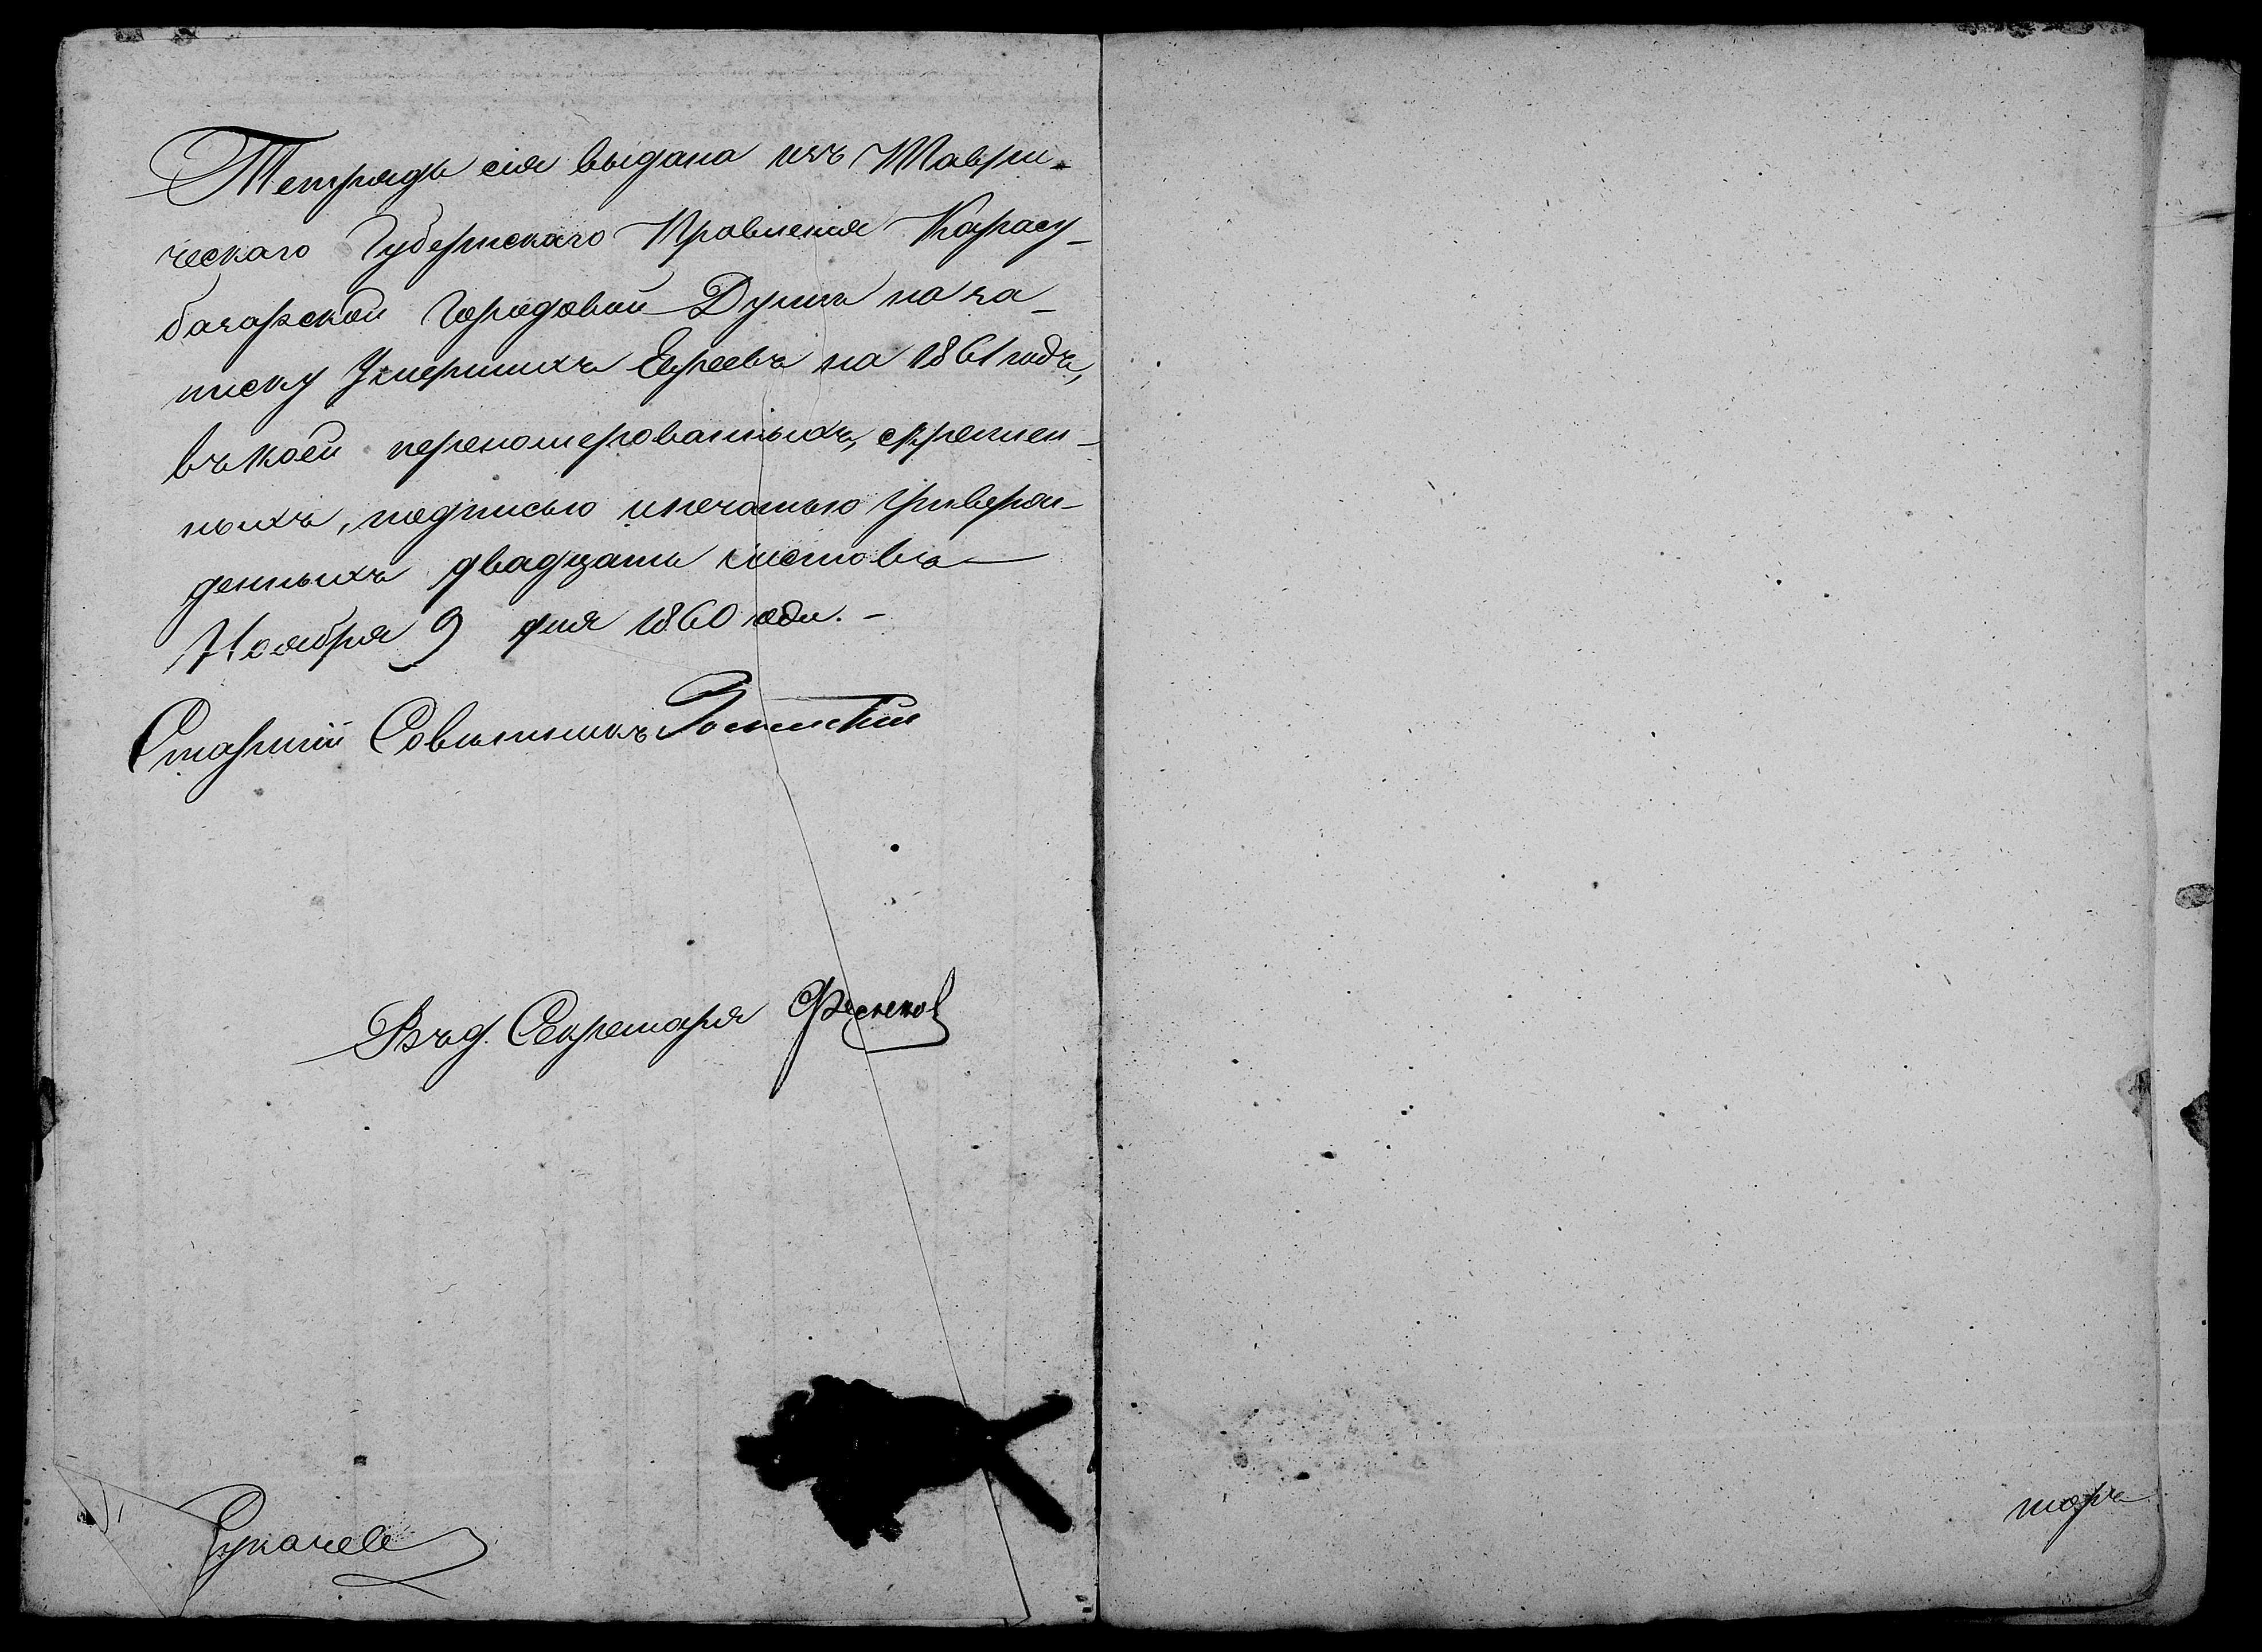 Тетрадь сія выдана изъ Таври-
ческаго Губернскаго Правленія Карасу-
базарской Городовой Думѣ на за-
писку Умершихъ Евреевъ на 1861 годъ,
въ коей перенумерованныхъ, скреплен-
ныхъ, подписью и печатью утвержд-
денныхъ двадцать листовъ
Ноября 9 дня 1860 года. -
Старшій Совѣтникъ
Въ д. Секретаря